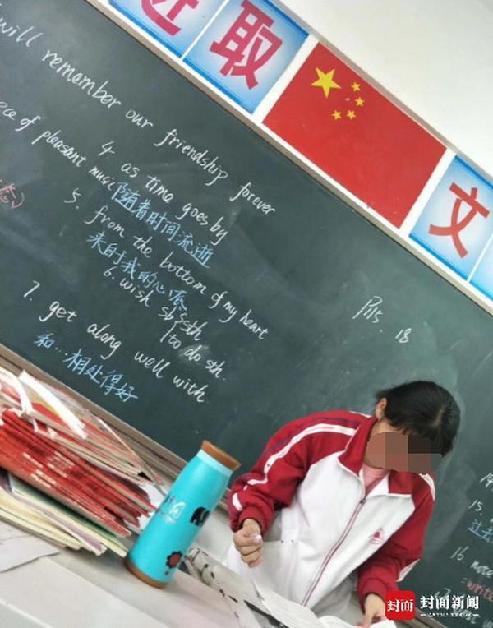 进取
文
will remember our friendship forever
of pleasant music
4. as time goes by
随着时间流逝
5. from the bottom of my heart
来自于我的心底
6. wish sb sth
to do sth.
7. get along well with
和…相处得好
P115. 18
15.
过去
16.
封面
封面新闻